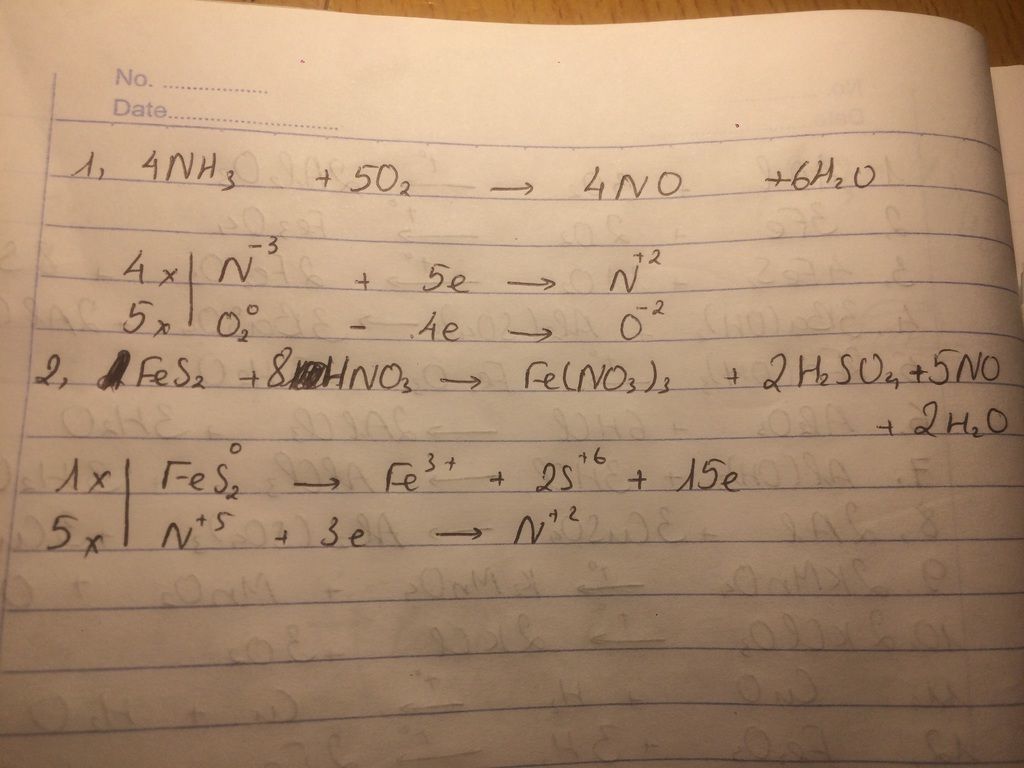 No. ................
Date............................
1, 4NH₃ + 5O₂ → 4NO + 6H₂O
4x | N⁻³ + 5e → N⁺²
5x | O₂⁰ - 4e → O⁻²
2, FeS₂ + 8HNO₃ → Fe(NO₃)₃ + 2H₂SO₄ + 5NO
+ 2H₂O
1x | FeS₂⁰ → Fe³⁺ + 2S⁺⁶ + 15e
5x | N⁺⁵ + 3e → N⁺²